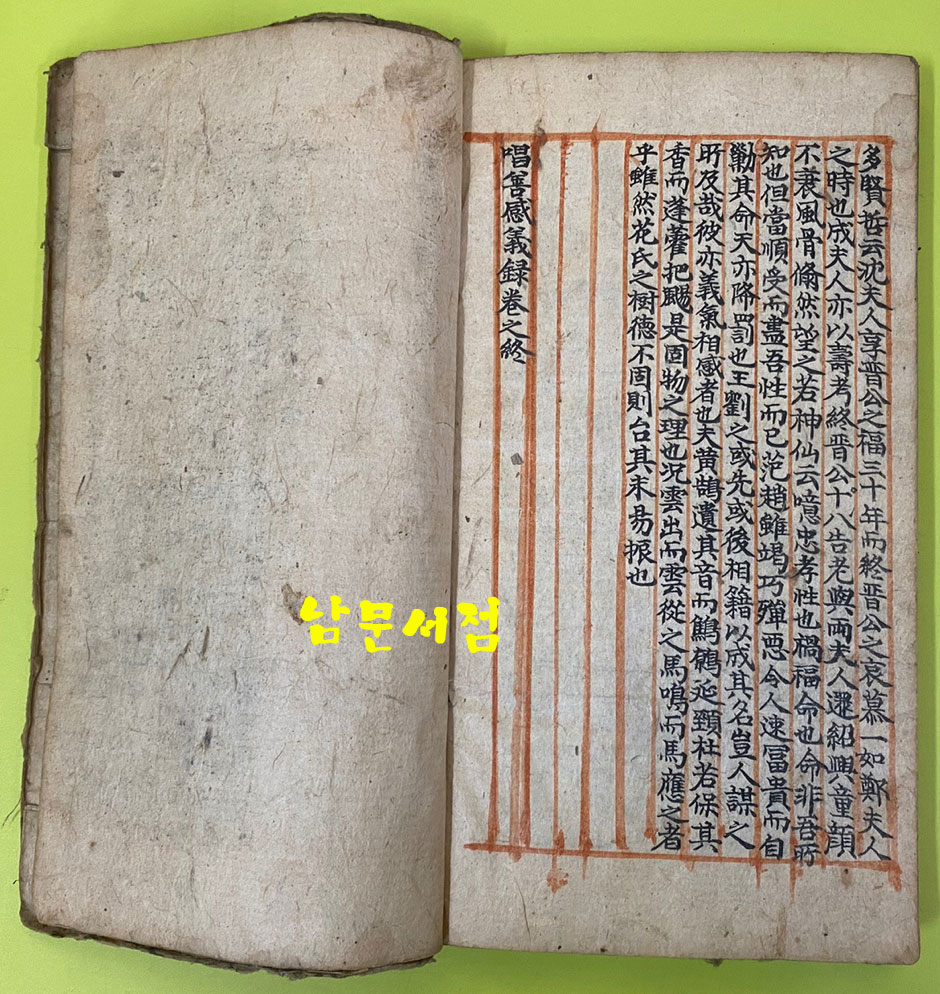 多賢哲云沈夫人享晋公之福三十年而終晋公之哀慕一如鄭夫人
之時也成夫人亦以壽考終晋公十八告老與兩夫人還紹興童顔
不衰風骨脩然望之若神仙云噫忠孝性也禍福命也命非吾所
知也但當順受而盡吾性而已范趙雖竭巧殫惡令人速冨貴而自
勦其命天亦降罰也王劉之或先或後相籍以成其名豈人謀之
所及哉彼亦義氣相感者也夫黄鵠遺其音而鷦鶴延頸杜若保其
香而蓬藿把颺是固物之理也况雲出而雲從之馬鳴而馬應之者
乎雖然花氏之樹德不固則台其末易振也
唱善感義録卷之終
남문서점